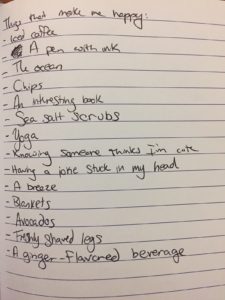 Things that make me happy:
- Iced coffee
- A pen with ink
- The ocean
- Chips
- An interesting book
- Sea salt scrubs
- Yoga
- Knowing someone thinks I'm cute
- Having a joke stuck in my head
- A breeze
- Blankets
- Avocados
- Freshly shaved legs
- A ginger-flavored beverage